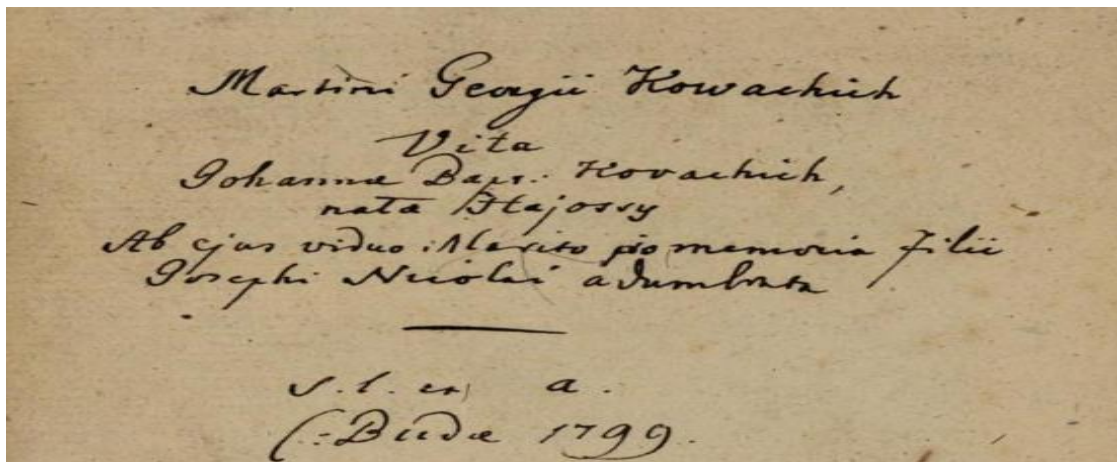 Martini Georgii Kowachich
Vita
Johannæ Bapt. Kovachich,
natæ Hajossy
Ab ejus viduo Marito pro memoria filii
Josephi Nicolai adumbrata
s. l. et a.
(: Budæ 1799.